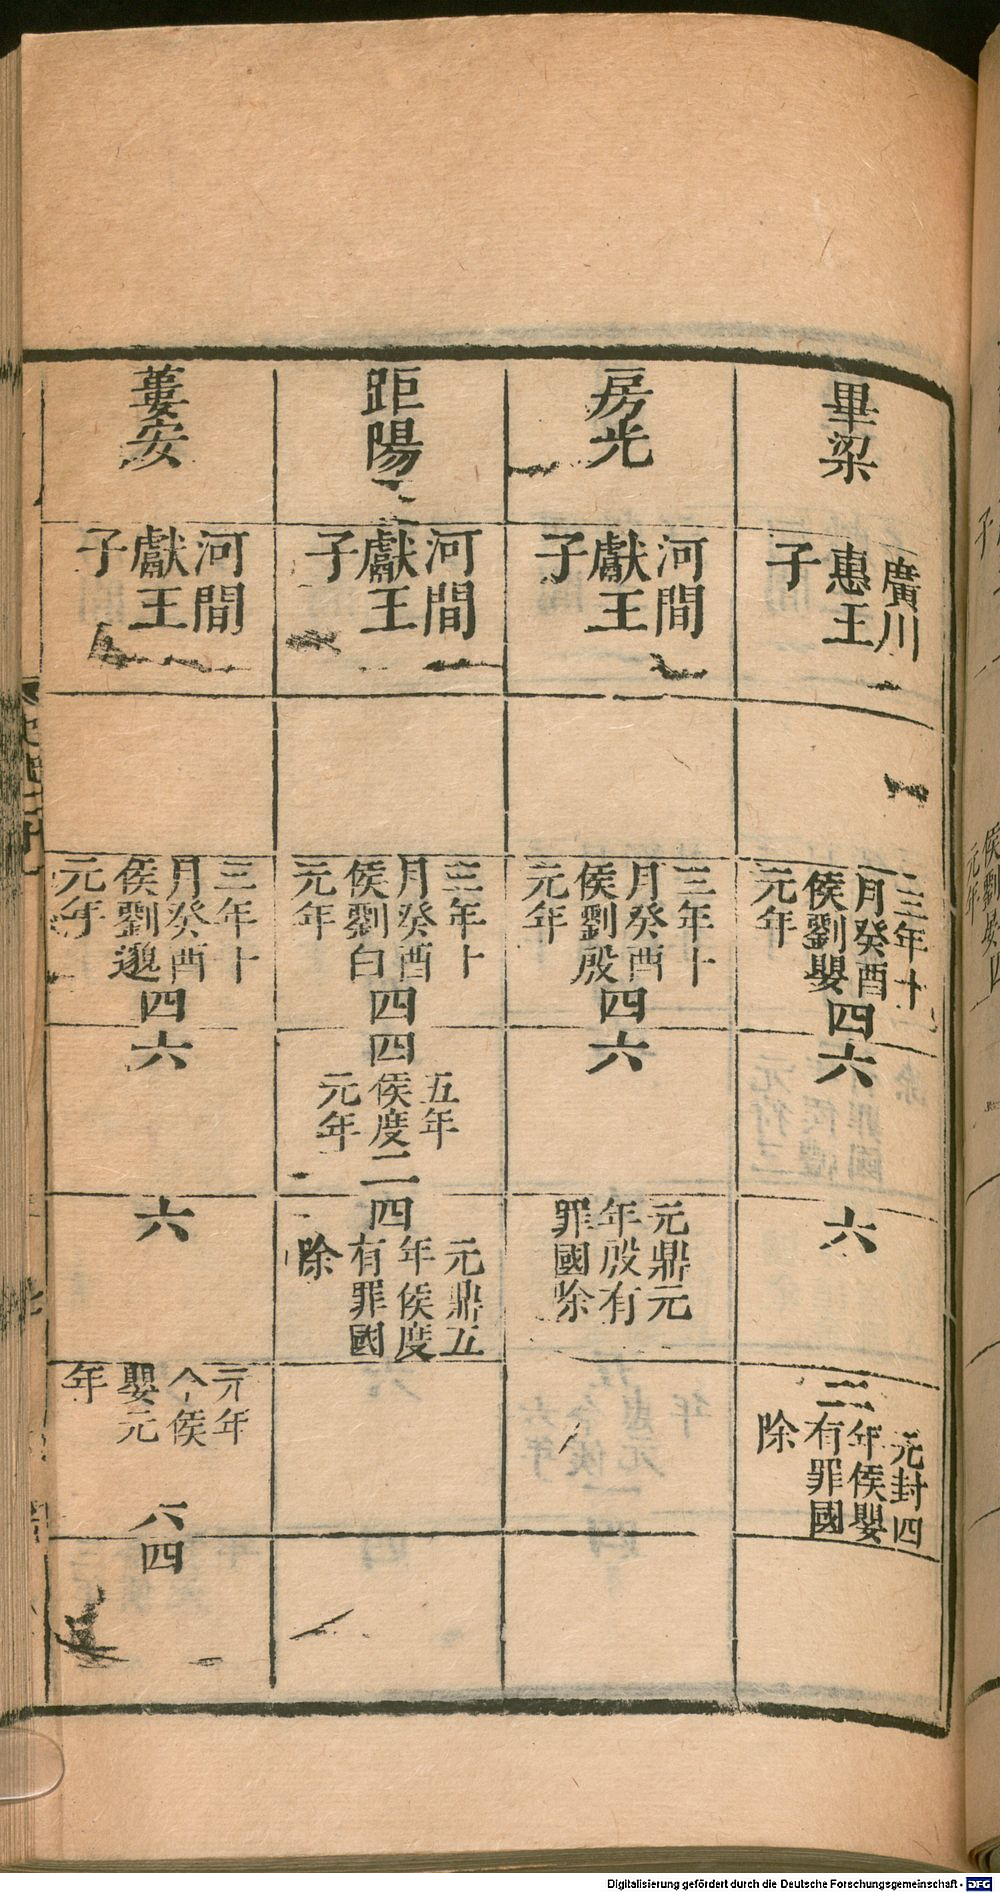 畢梁
廣川
惠王
子
三年十
月癸酉
侯劉嬰
元年
四
六
六
三
元封四
年侯嬰
有罪國
除
房光
河間
獻王
子
三年十
月癸酉
侯劉殷
元年
四
六
元鼎元
年殷有
罪國除
距陽
河間
獻王
子
三年十
月癸酉
侯劉白
元年
四
四
五年
侯度
元年
二
四
元鼎五
年侯度
有罪國
除
蔞安
河間
獻王
子
三年十
月癸酉
侯劉邈
元年
四
六
六
元年
今侯
嬰元
年
六
四
Digitalisierung gefördert durch die Deutsche Forschungsgemeinschaft - DFG